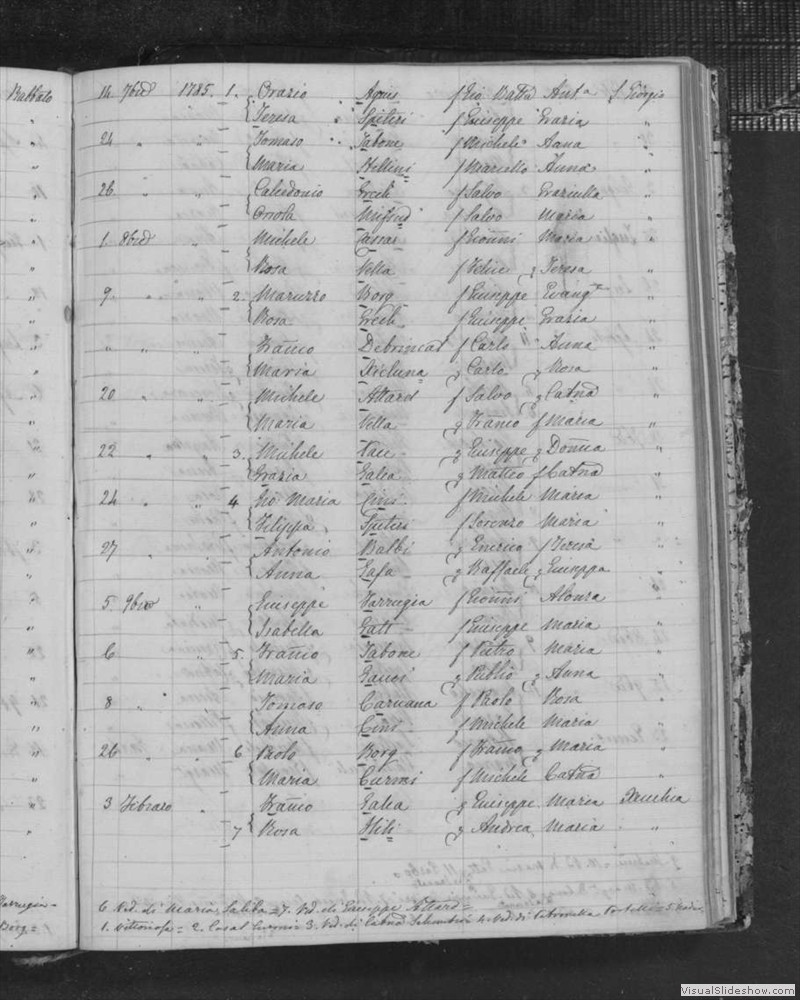 Babbato 14 7bre 1785. 1. Orazio Agius f Gio Batta Anta S. Giorgio
Teresa Spiteri f Giuseppe Grazia "
24 " " Tomaso Tabone f Michele Anna "
Maria Stellini f Marcello Anna "
26 " " Calcedonio Grech f Salvo Graziulla "
Orsola Mifsud f Salvo Maria "
1. 8bre " Michele Cassar f Gioanni Maria "
Rosa Vella f Felice g Teresa "
9. " " 2. Maruzzo Borg f Giuseppe Evangta "
Rosa Grech f Giuseppe Grazia "
" " " Franco Debrincat f Carlo " Anna "
Maria Scicluna g Carlo g Rosa "
20 " " Michele Attard f Salvo g Catna "
Maria Vella g Franco f Maria "
22 " " 3. Michele Pace g Giuseppe g Domca "
Grazia Galea g Matteo f Catna "
24 " " 4 Gio Maria Cini f Michele Maria "
Filippa Spiteri f Lorenzo Maria "
27 " " Antonio Balbi g Enrico f Teresa "
Anna Zafa g Raffaele g Giuseppa "
5. 9bre " Giuseppe Farrugia f Gioanni Alonza "
Isabella Gatt f Giuseppe Maria "
6 " 5. Franco Tabone f Pietro Maria "
Maria Gauci g Publio g Anna "
8 " " Tomaso Caruana f Paolo Rosa "
Anna Cini g Michele Maria "
26 " 6 Paolo Borg f Franco g Maria "
Maria Curmi f Michele Catna "
3 Febraro " Franco Galea g Giuseppe Maria Xeuchia
7 Rosa Hili g Andrea Maria "
6 Ved. di Maria Saliba = 7. Ved. di Giuseppe Attard =
Farrugia =
1. Vittoriosa = 2. Casal Curmi = 3. Ved. di Catna 4. Ved. di Petronilla
Borg =
VisualSlideshow.com